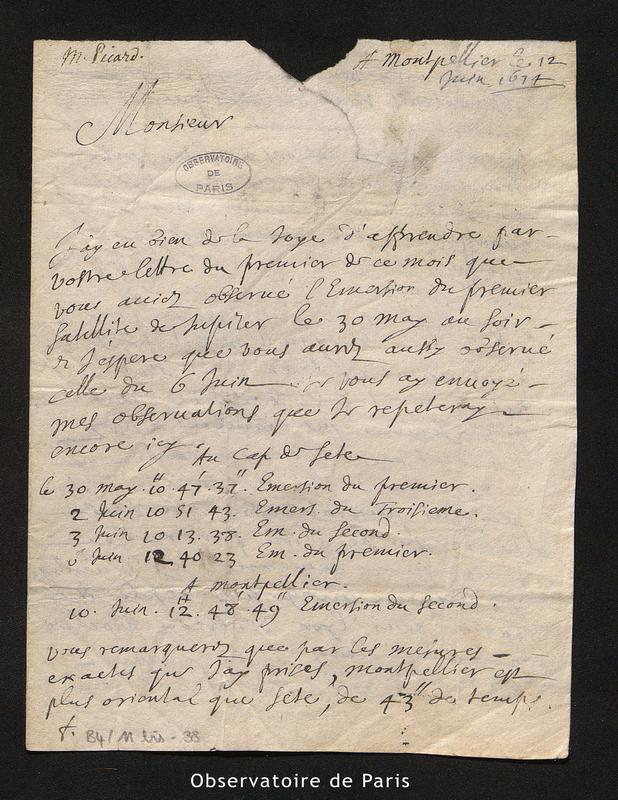 M. Picard.
A Montpellier le 12
Juin 1674
Monsieur
OBSERVATOIRE
DE
PARIS
J'ay eu bien de la Joye d'apprendre par
vostre lettre du premier de ce mois que
vous aviez observé l'Emersion du premier
satellite de Jupiter le 30 may au soir
et J'espere que vous aurez aussy observé
celle du 6 Juin vous ay envoyé
mes observations que Je repeteray
encore icy Au Cap de Sete
le 30 may. 10. 47. 37" Emersion du premier.
2 Juin 10 51 43. Emers. du Troisieme.
3 Juin 10. 13. 38. Em. du second.
6 Juin 12 40 23 Em. du premier.
A montpellier.
10. Juin. 12. 48. 49" Emersion du second.
vous remarquerez que par les mesures
exactes que J'ay prises, montpellier est
plus oriental que Sete, de 43" de temps.
B4/11 bis - 38
Observatoire de Paris